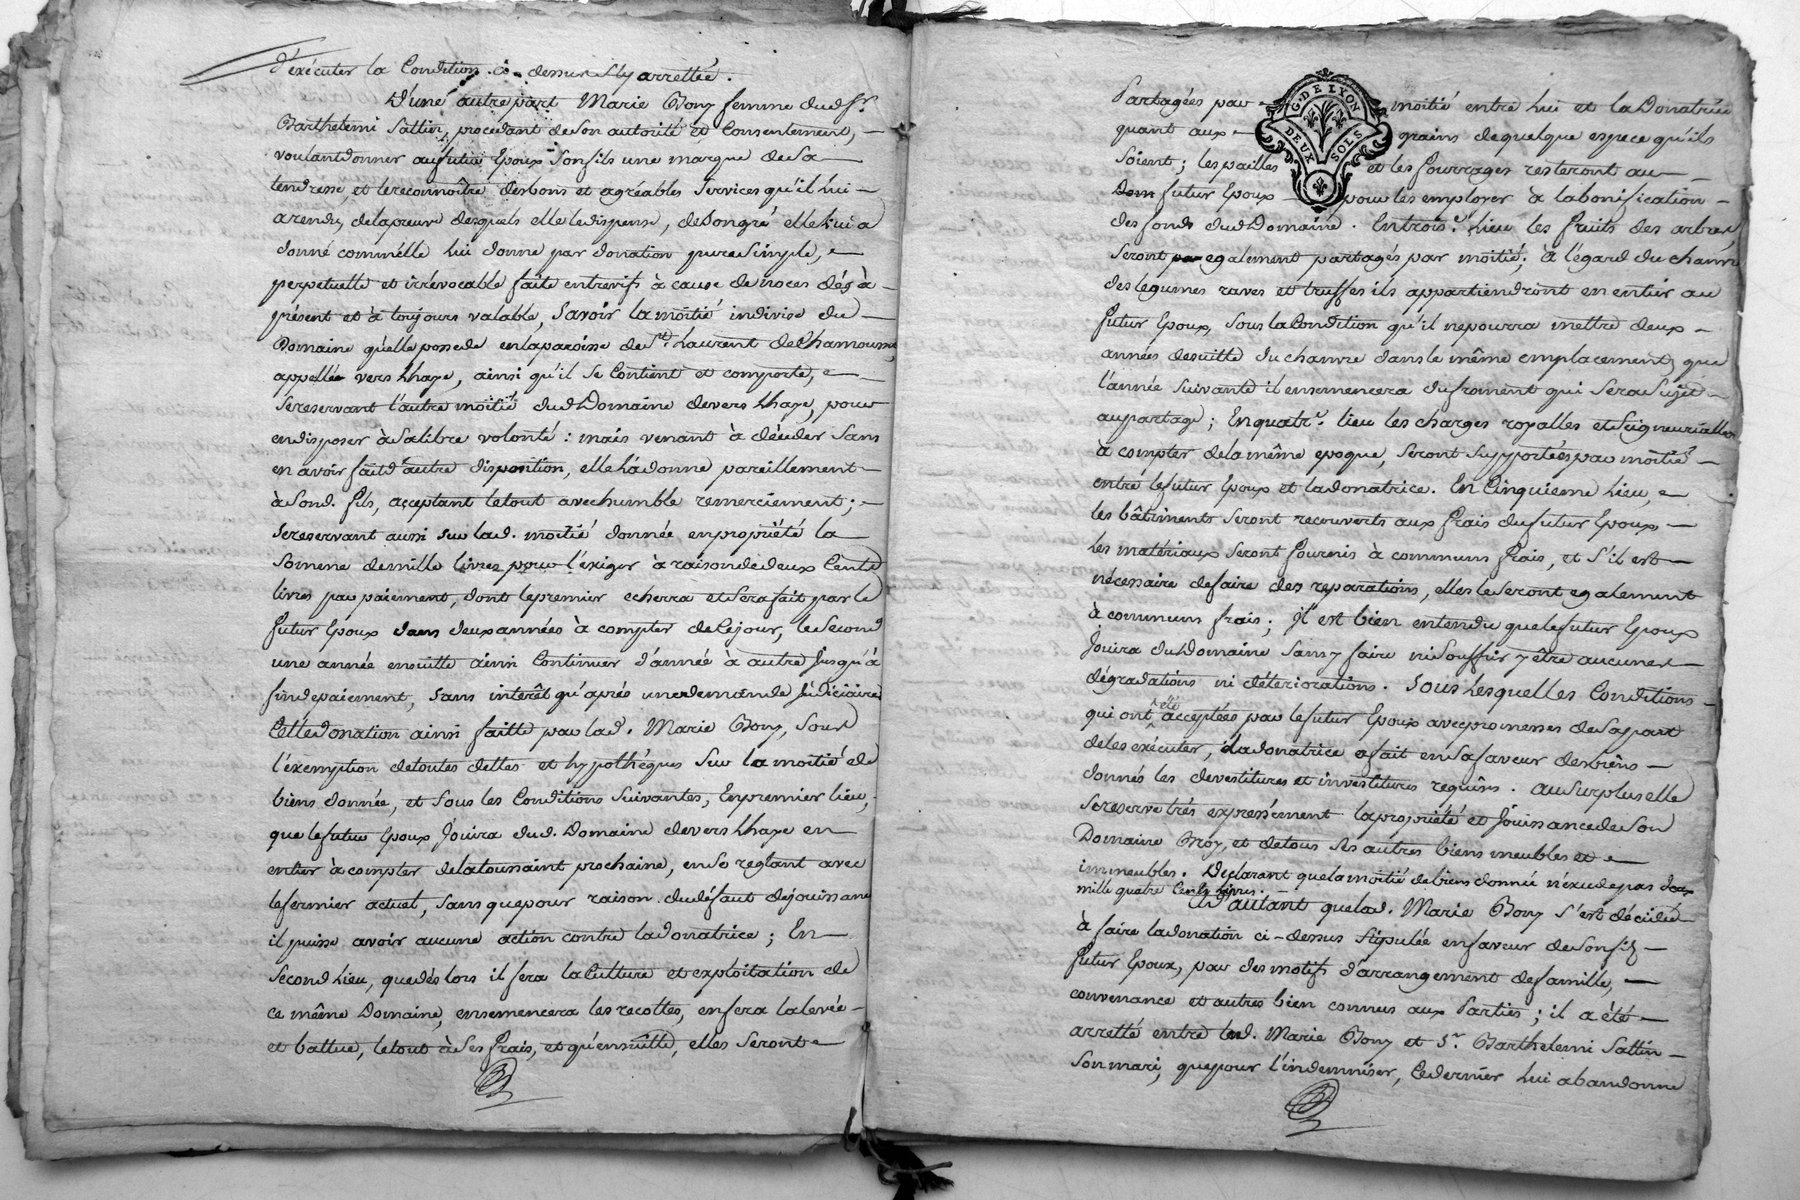 d'exécuter la Condition ci-dessus Sty arrettée.
D'une autre part Marie Bony femme dud Sr.
Barthelemi Sattin, procedant de Son autorité et Consentement,
voulant donner au futur Epoux Son fils une marque de Sa
tendresse, et le reconnoître des bons et agréables Services qu'il Lui
a rendu, de la preuve desquels elle le dispense, de Son gré elle Lui a
donné comm'elle Lui donne par donation pure Simple,
perpetuelle et irrévocable faite entrevifs à cause de noces dés à
présent et à toujours valable, Savoir la moitié indivise du
Domaine qu'elle possede en la paroisse de St. Laurent de Chamousset,
appellée vers Lhaye, ainsi qu'il Se Contient et comporte,
Se reservant l'autre moitié dud Domaine de vers Lhaye, pour
en disposer à Sa libre volonté : mais venant à décéder Sans
en avoir fait d'autre disposition, elle l'a donne pareillement
à Sond. fils, acceptant le tout avec humble remerciement ;
Se reservant aussi Sur lad. moitié donnée en propriété la
Somme de mille livres pour l'éxiger à raison de deux Cents
livres par paiement, dont le premier echerra et Sera fait par le
futur Epoux dans deux années à compter de Cejour, le Second
une année ensuitte ainsi Continuer d'année à autre Jusqu'à
fin de paiement, Sans intérêt qu'après une demande Judiciaire
Cette donation ainsi faitte par lad. Marie Bony, Sous
l'éxemption de toutes dettes et hypothéques Sur la moitié de
biens donnée, et Sous les Conditions Suivantes, En premier lieu,
que le futur Epoux Jouira dud. Domaine de vers Lhaye en
entier à compter de la toussaint prochaine, en Se reglant avec
le fermier actuel, Sans que pour raison du défaut de jouissance
il puisse avoir aucune action contre la donatrice ; En
Second Lieu, que dès lors il fera la Culture et exploitation de
ce même Domaine, ensemencera les recoltes, en fera la levée
et battue, le tout à Ses frais, et qu'ensuitte, elles Seront
Partagées par moitié entre Lui et la Donatrice
quant aux grains de quelque espece qu'ils
Soient ; les pailles et les fourrages resteront au
futur Epoux pour les employer à la bonification
des fonds dud Domaine. En trois.e Lieu les fruits des arbres
Seront également partagés par moitié ; à l'égard du chanvre
des légumes raves et truffes ils appartiendront en entier au
futur Epoux, Sous la Condition qu'il ne pourra mettre deux
années de suitte du chanvre dans le même emplacement, que
l'année Suivante il ensemencera du froment qui Sera Sujet
au partage ; En quatr.e lieu les charges royalles et Seigneurialles
à compter de la même epoque, Seront Supportées par moitié
entre le futur Epoux et la donatrice. En Cinquieme Lieu,
les bâtiments Seront recouverts aux frais du futur Epoux,
Les matériaux Seront fournis à communs frais, et S'il est
nécessaire de faire des reparations, elles le Seront egalement
à communs frais ; Il est bien entendu que le futur Epoux
Jouira dud Domaine Sans y faire ni Souffrir y être aucunes
dégradations ni déteriorations. Sous Lesquelles Conditions
qui ont été acceptées par le futur Epoux avec promesses de Sa part
de les exécuter, la donatrice a fait en Sa faveur des biens
donnés les devestitures et investitures requises. Au Surplus elle
Se reserve trés expressément la propriété et Jouissance de Son
Domaine Croy, et de tous Ses autres biens meubles et
immeubles. Declarant que la moitié de biens donnée n'éxcede pas deux
mille quatre Cents livres.
D'autant que lad. Marie Bony S'est décidée
à faire la donation ci-dessus Stipulée en faveur de Son fils
futur Epoux, par des motifs d'arrangement de famille,
convenance et autres bien connus aux Parties ; il a été
arretté entre lad. Marie Bony et Sr. Barthelemi Sattin
Son mari, que pour l'indemniser, Ce dernier Lui abandonne
G. DE LYON
DEUX SOLS